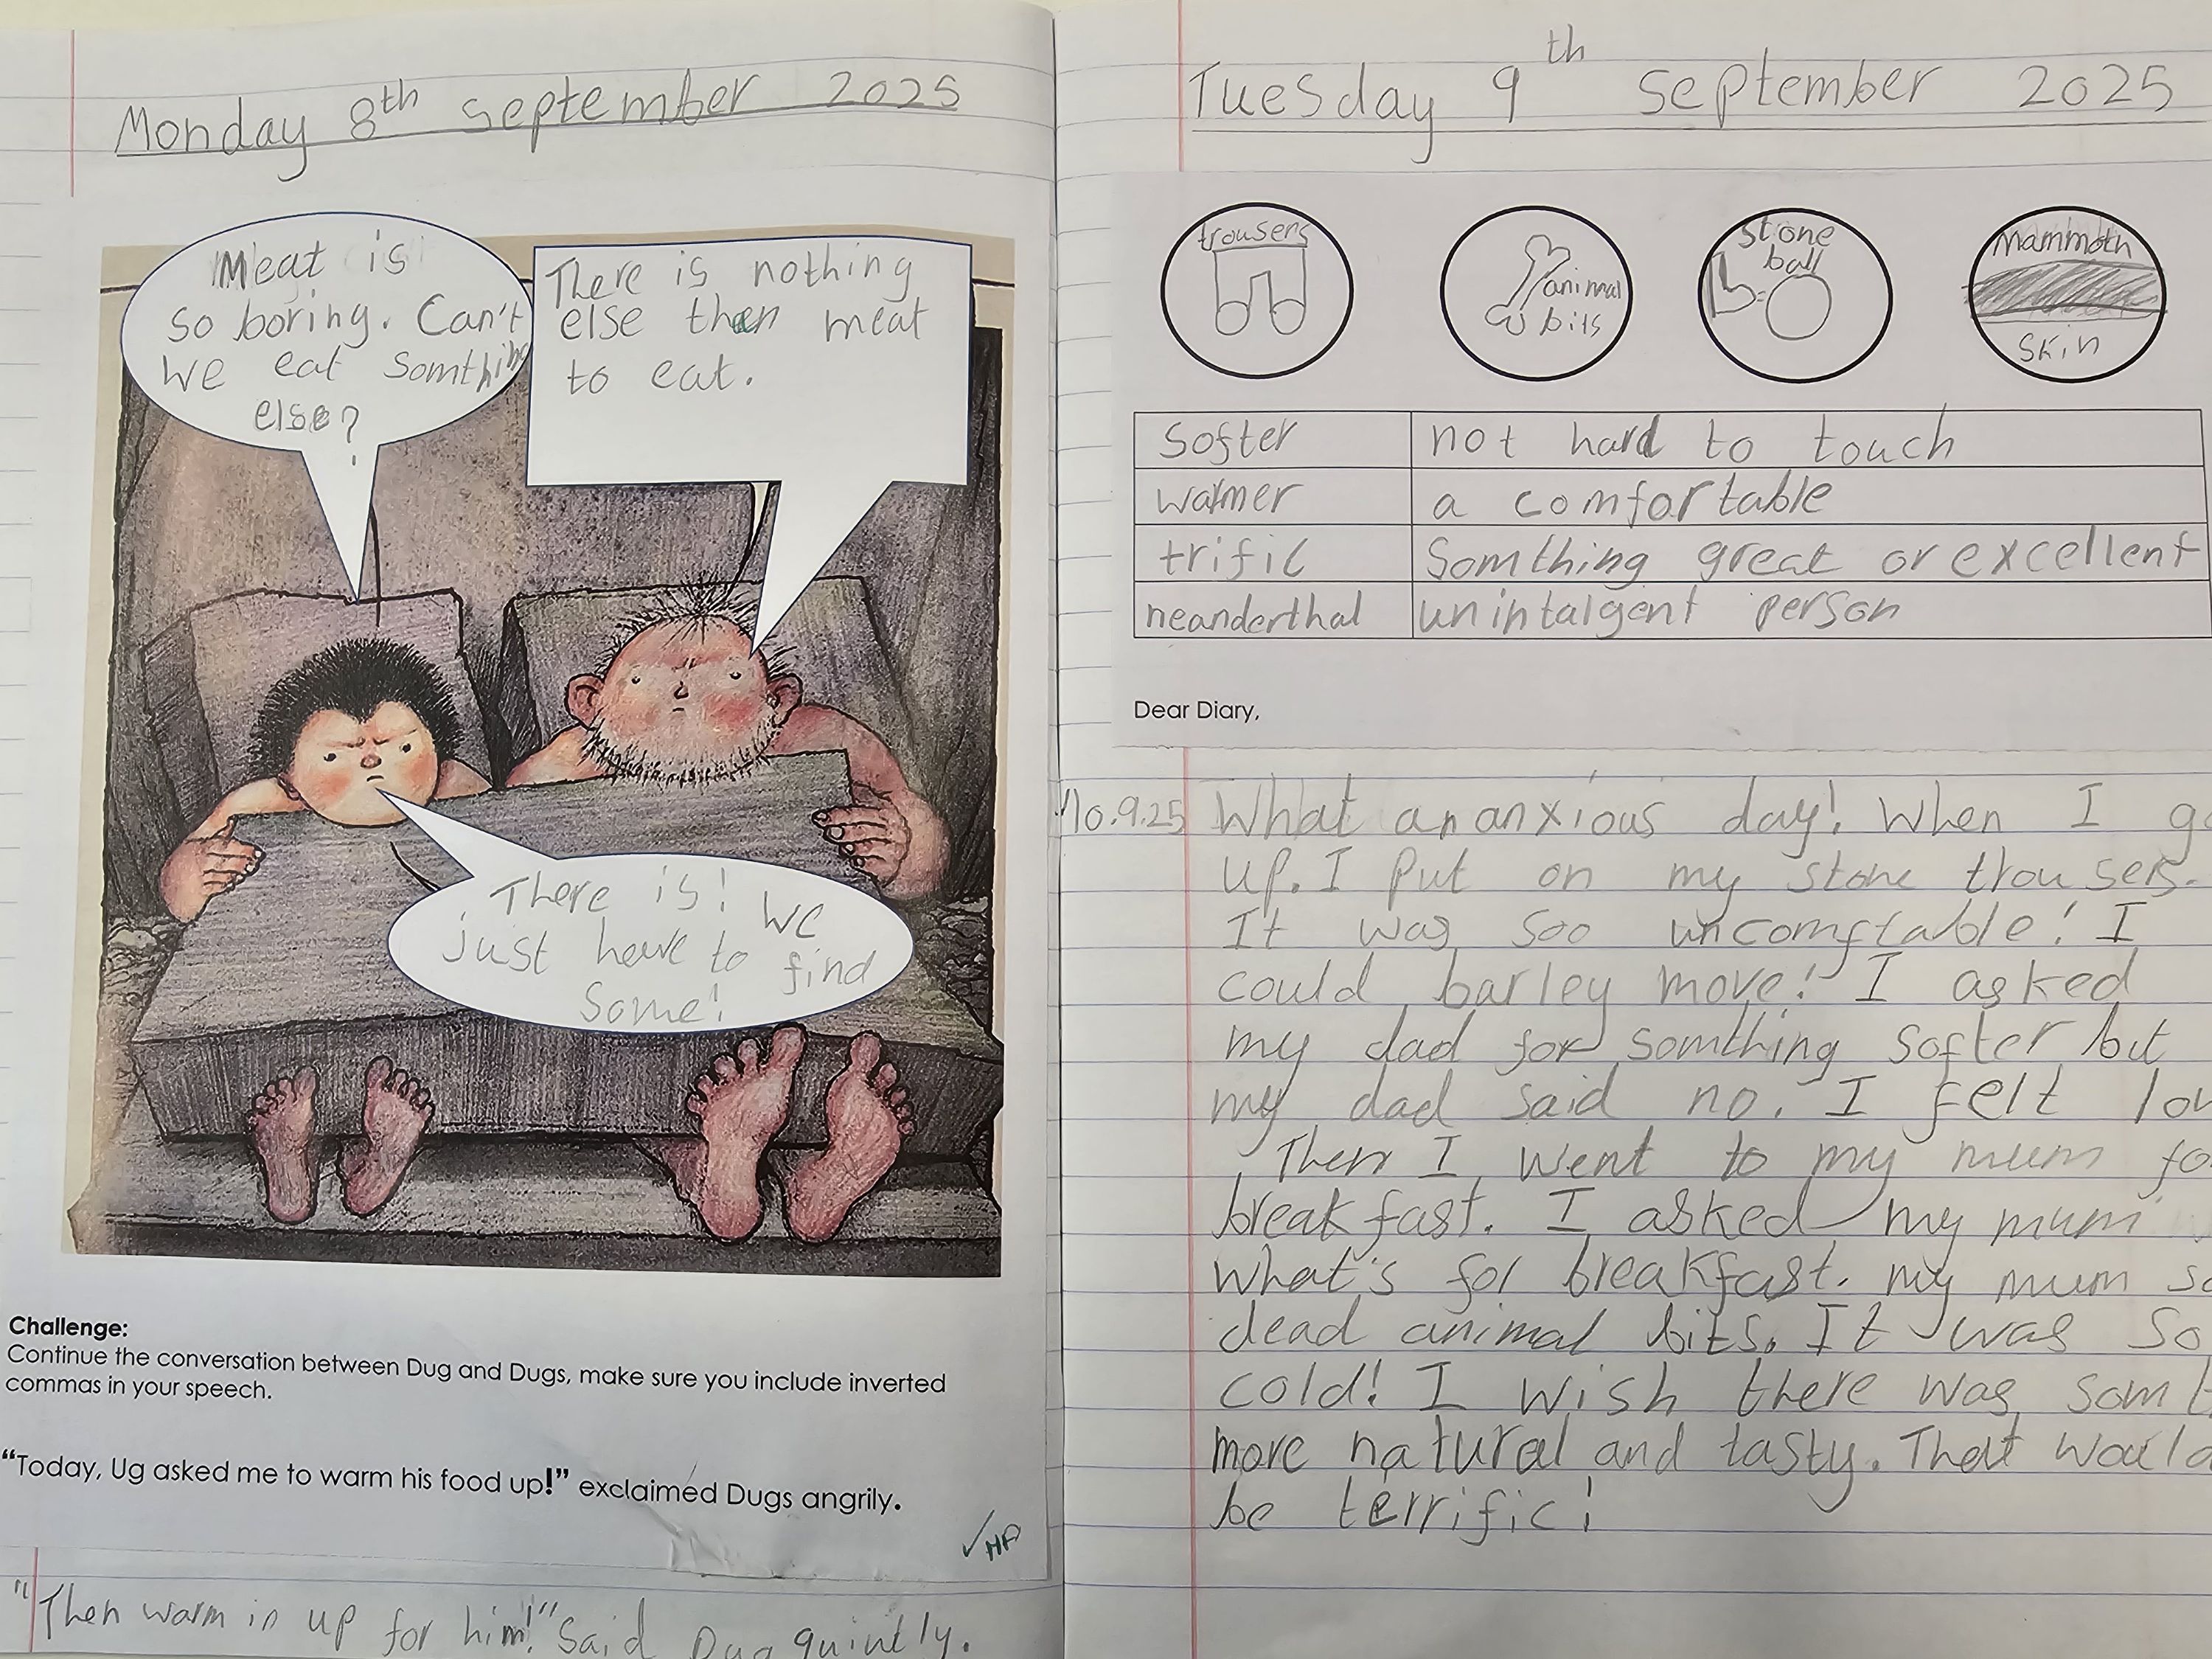 Monday 8th september 2025
Meat is
so boring. Can't
we eat Somthing
else?
There is nothing
else then meat
to eat.
There is! We
just have to find
some!
Challenge:
Continue the conversation between Dug and Dugs, make sure you include inverted
commas in your speech.
“Today, Ug asked me to warm his food up!” exclaimed Dugs angrily.
"Then warm in up for him!" Said Dug quintly.
Tuesday 9th September 2025
trousers
animal
bits
stone
ball
mammoth
skin
Softer not hard to touch
warmer a comfortable
trific Somthing great or excellent
neanderthal unintalgent person
Dear Diary,
10.9.25 What an anxious day! When I
up. I put on my stone trousers.
It was soo uncomftable! I
could barley move! I asked
my dad for somthing softer but
my dad said no. I felt
Then I went to my mum
breakfast. I asked my mum
what's for breakfast. my mum
dead animal bits. It was so
cold! I wish there was
more natural and tasty. That would
be terrific!